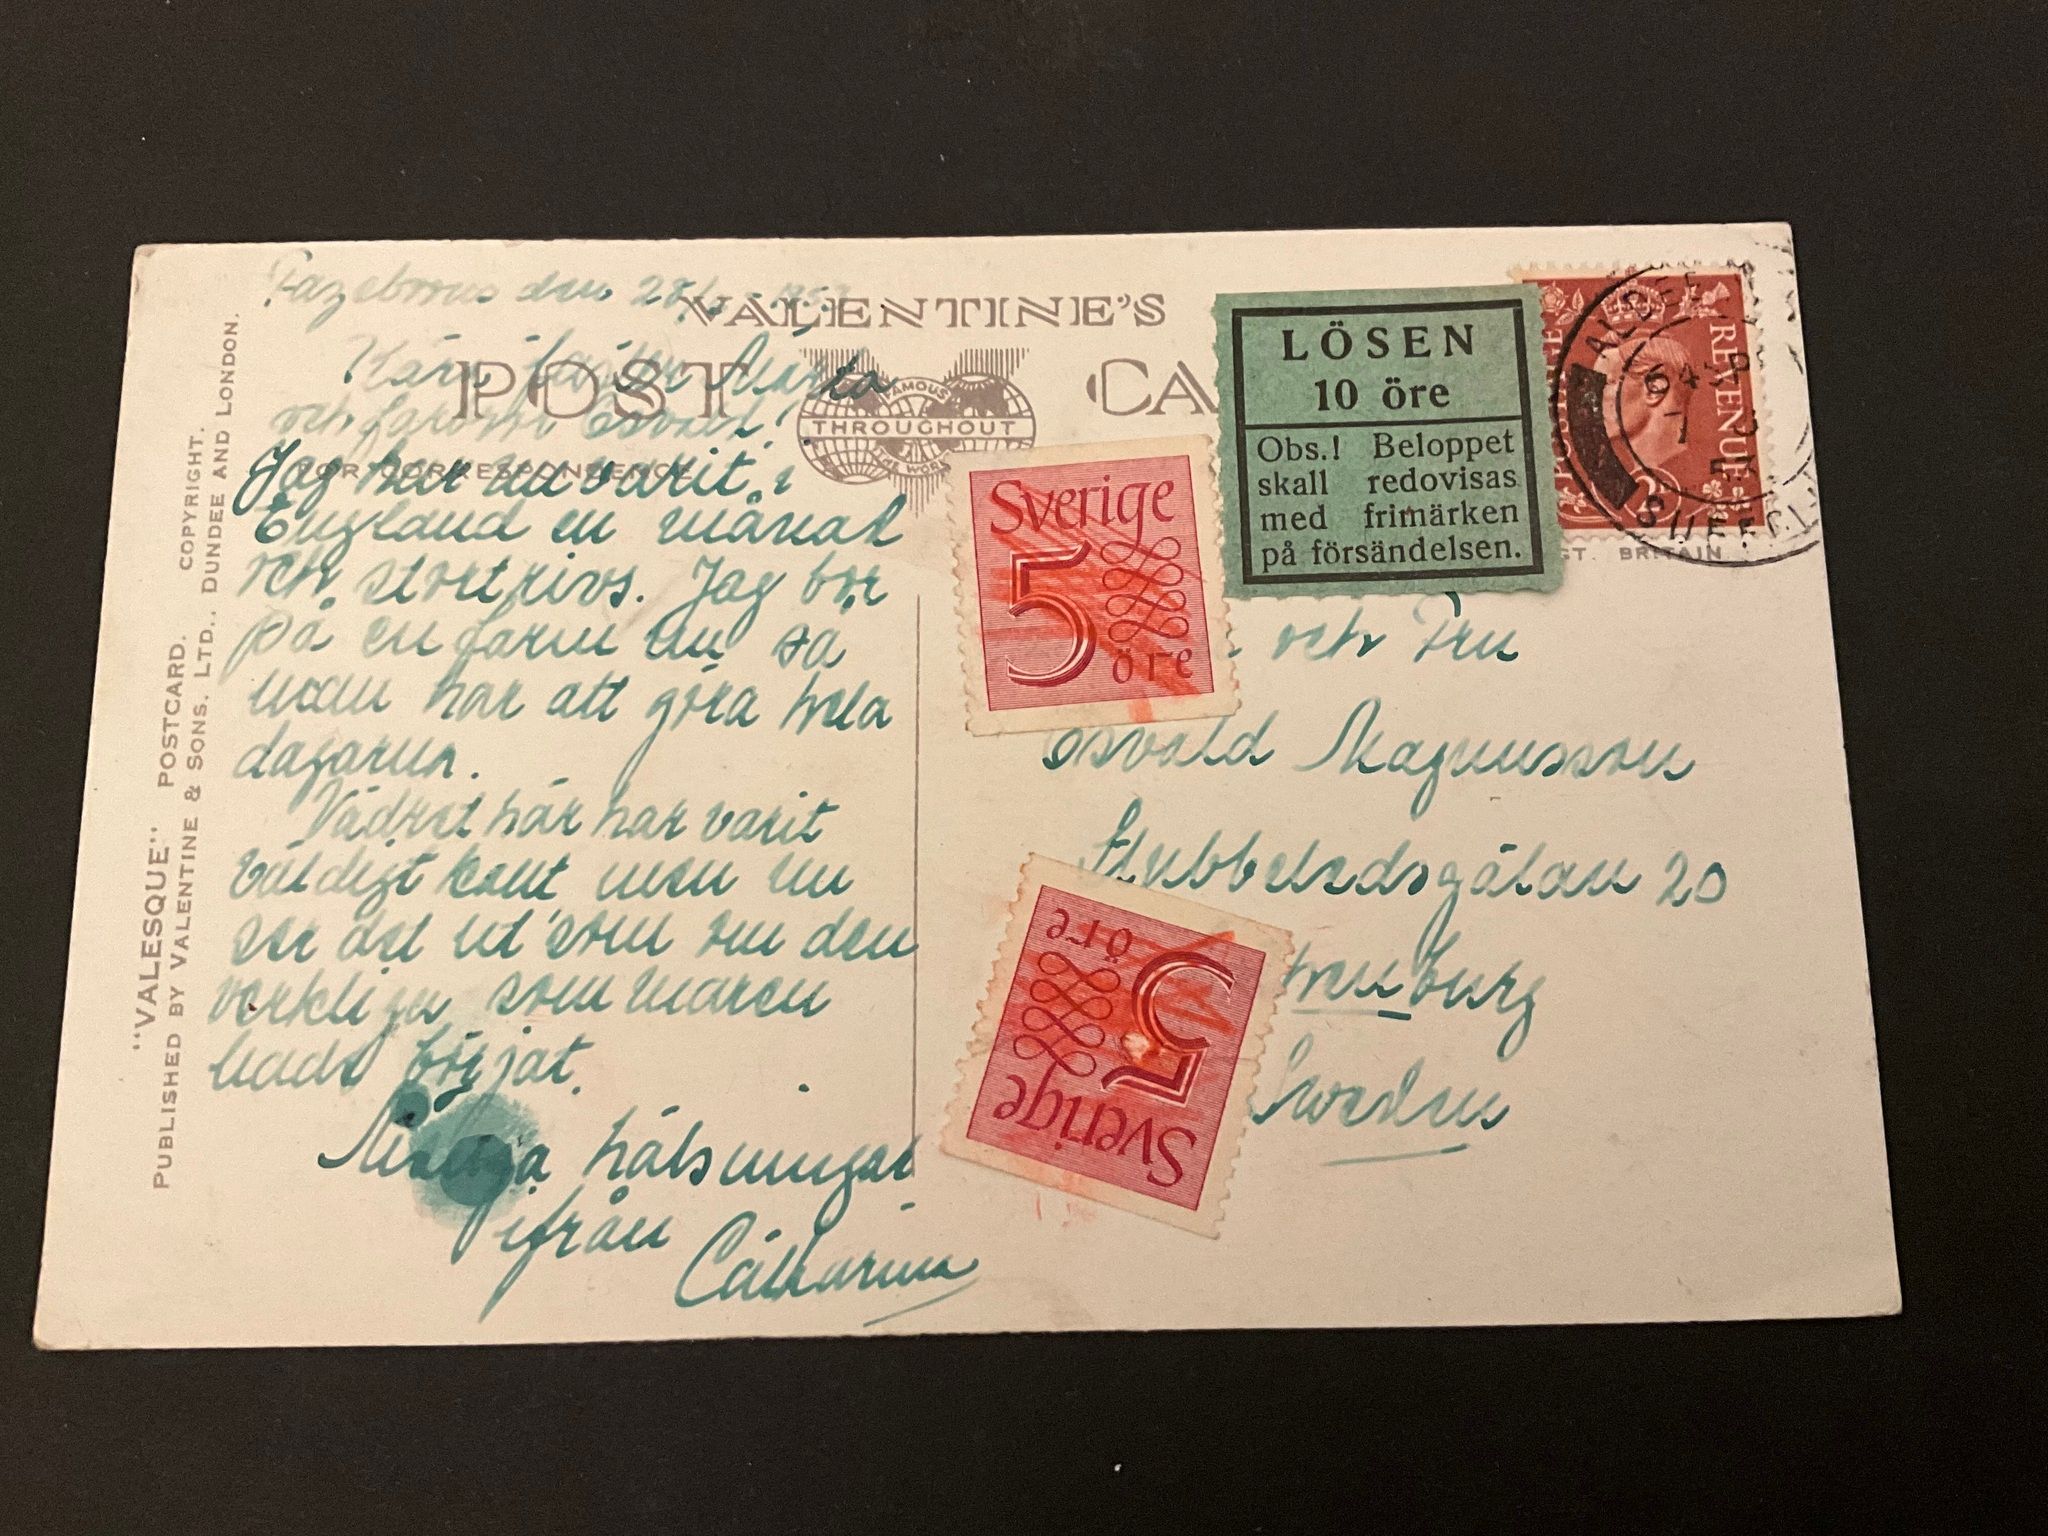 den 28
VALENTINE'S
POST CA
FAMOUS
THROUGHOUT
THE WORLD
FOR CORRESPONDENCE
Kära faster Märta
och farbror Osvald!
Jag har nu varit i
England en månad
och stortrivs. Jag bor
på en farm nu så
man har att göra hela
dagarna.
Vädret här har varit
väldigt kallt men nu
ser det ut som om den
verkliga sommaren
hade börjat.
Många hälsningar
ifrån
Catharina
"VALESQUE" POSTCARD. COPYRIGHT.
PUBLISHED BY VALENTINE & SONS. LTD., DUNDEE AND LONDON.
LÖSEN
10 öre
Obs.! Beloppet
skall redovisas
med frimärken
på försändelsen.
REVENUE
GT. BRITAIN
Sverige
5
öre
Sverige
5
öre
och Fru
Osvald Magnusson
20
Sweden